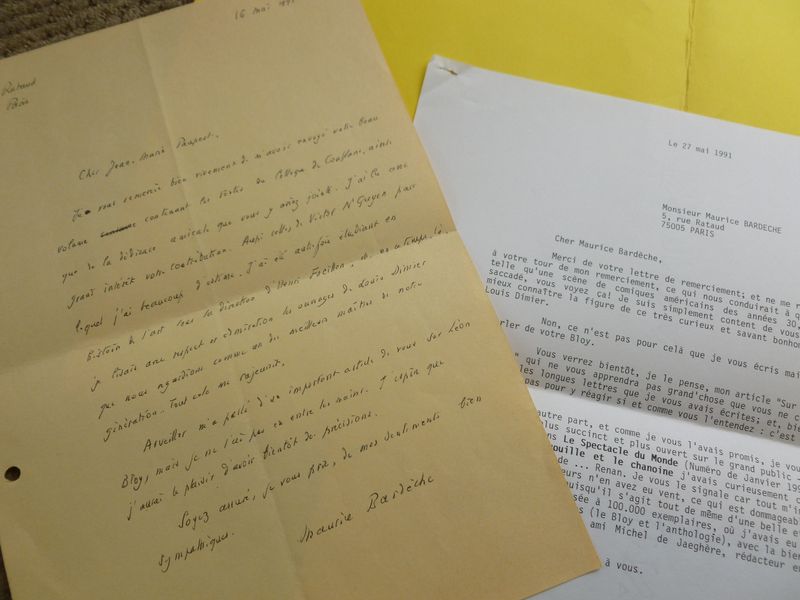 16 mai 1991
Rataud
Paris
Cher Jean-Marie Paupert,
Je vous remercie bien vivement de m'avoir envoyé votre beau
volume contenant les textes du Colloque de Conflans, ainsi
que de la dédicace amicale que vous y avez jointe. J'ai lu avec
grand intérêt votre contribution. Aussi celle de Victor N'Guyen pour
lequel j'ai beaucoup d'estime. J'ai été autrefois étudiant en
histoire de l'art sous la direction d'Henri Focillon, et, en ce temps-là
je lisais avec respect et admiration les ouvrages de Louis Dimier
que nous regardions comme un des meilleurs maîtres de notre
génération. Tout cela me rajeunit.
Arveiller m'a parlé d'un important article de vous sur Léon
Bloy, mais je ne l'ai pas eu entre les mains. J'espère que
j'aurai le plaisir d'avoir bientôt de précisions.
Soyez assuré, je vous prie, de mes sentiments bien
sympathiques.
Maurice Bardèche
Le 27 mai 1991
Monsieur Maurice BARDECHE
5, rue Rataud
75005 PARIS
Cher Maurice Bardèche,
Merci de votre lettre de remerciement; et ne me r
à votre tour de mon remerciement, ce qui nous conduirait à q
telle qu'une scène de comiques américains des années 30,
saccadé, vous voyez ça! Je suis simplement content de vous
mieux connaître la figure de ce très curieux et savant bonhom
Louis Dimier.
Non, ce n'est pas pour celà que je vous écris mai
rler de votre Bloy.
Vous verrez bientôt, je le pense, mon article "Sur
" qui ne vous apprendra pas grand'chose que vous ne c
les longues lettres que je vous avais écrites; et, bie
pas pour y réagir si et comme vous l'entendez : c'est
autre part, et comme je vous l'avais promis, je vou
plus succinct et plus ouvert sur le grand public
ns Le Spectacle du Monde (Numéro de Janvier 199
rouille et le chanoine j'avais curieusement
de ... Renan. Je vous le signale car tout m'in
eurs n'en avez eu vent, ce qui est dommageab
uisqu'il s'agit tout de même d'une belle e
sée à 100.000 exemplaires, où j'avais eu
s (le Bloy et l'anthologie), avec la bien
ami Michel de Jaeghère, rédacteur en
à vous.